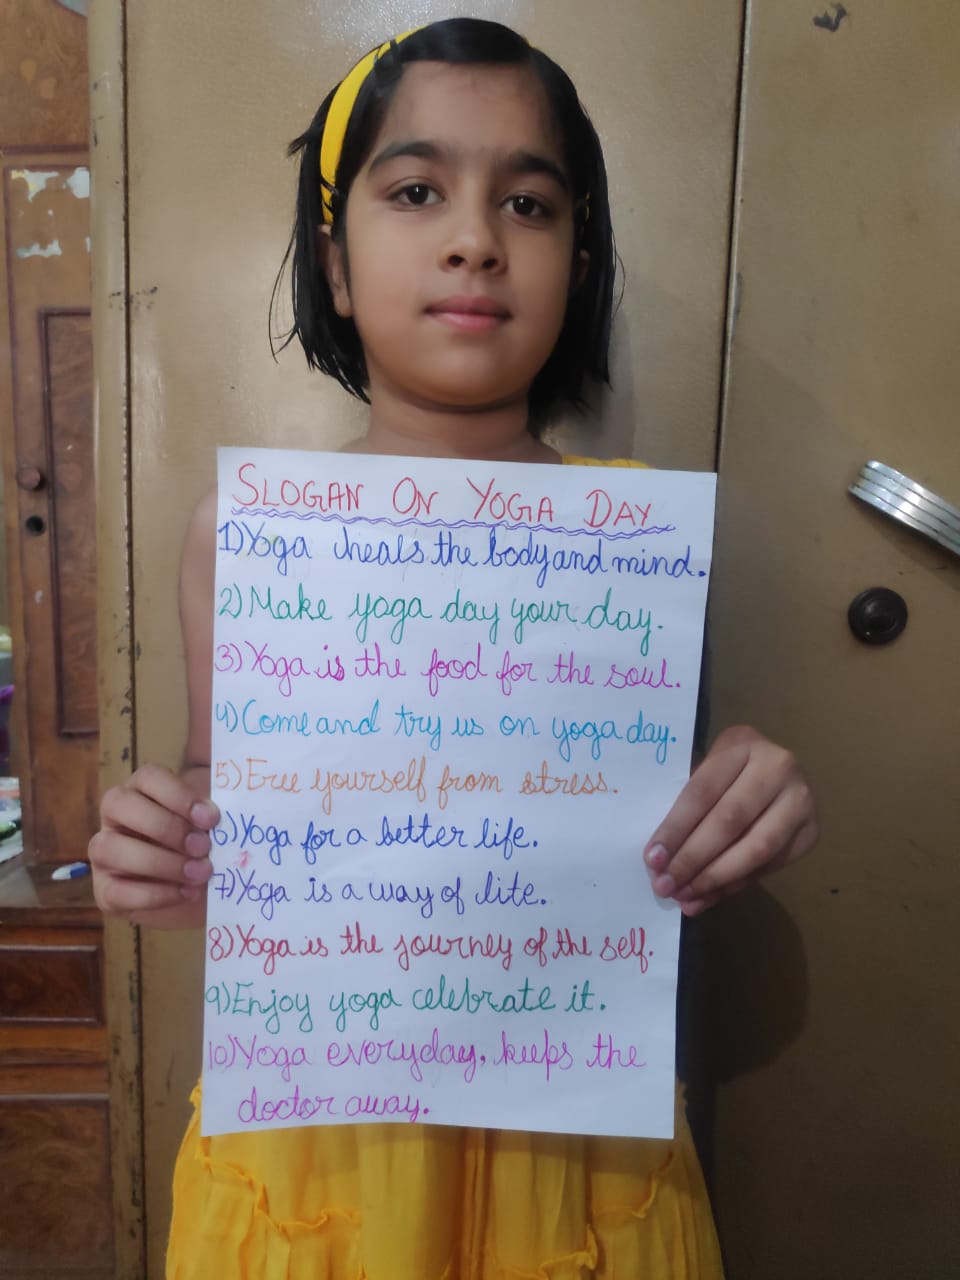 SLOGAN ON YOGA DAY
1) Yoga heals the body and mind.
2) Make yoga day your day.
3) Yoga is the food for the soul.
4) Come and try us on yoga day.
5) Free yourself from stress.
6) Yoga for a better life.
7) Yoga is a way of lite.
8) Yoga is the journey of the self.
9) Enjoy yoga celebrate it.
10) Yoga everyday, keeps the
doctor away.